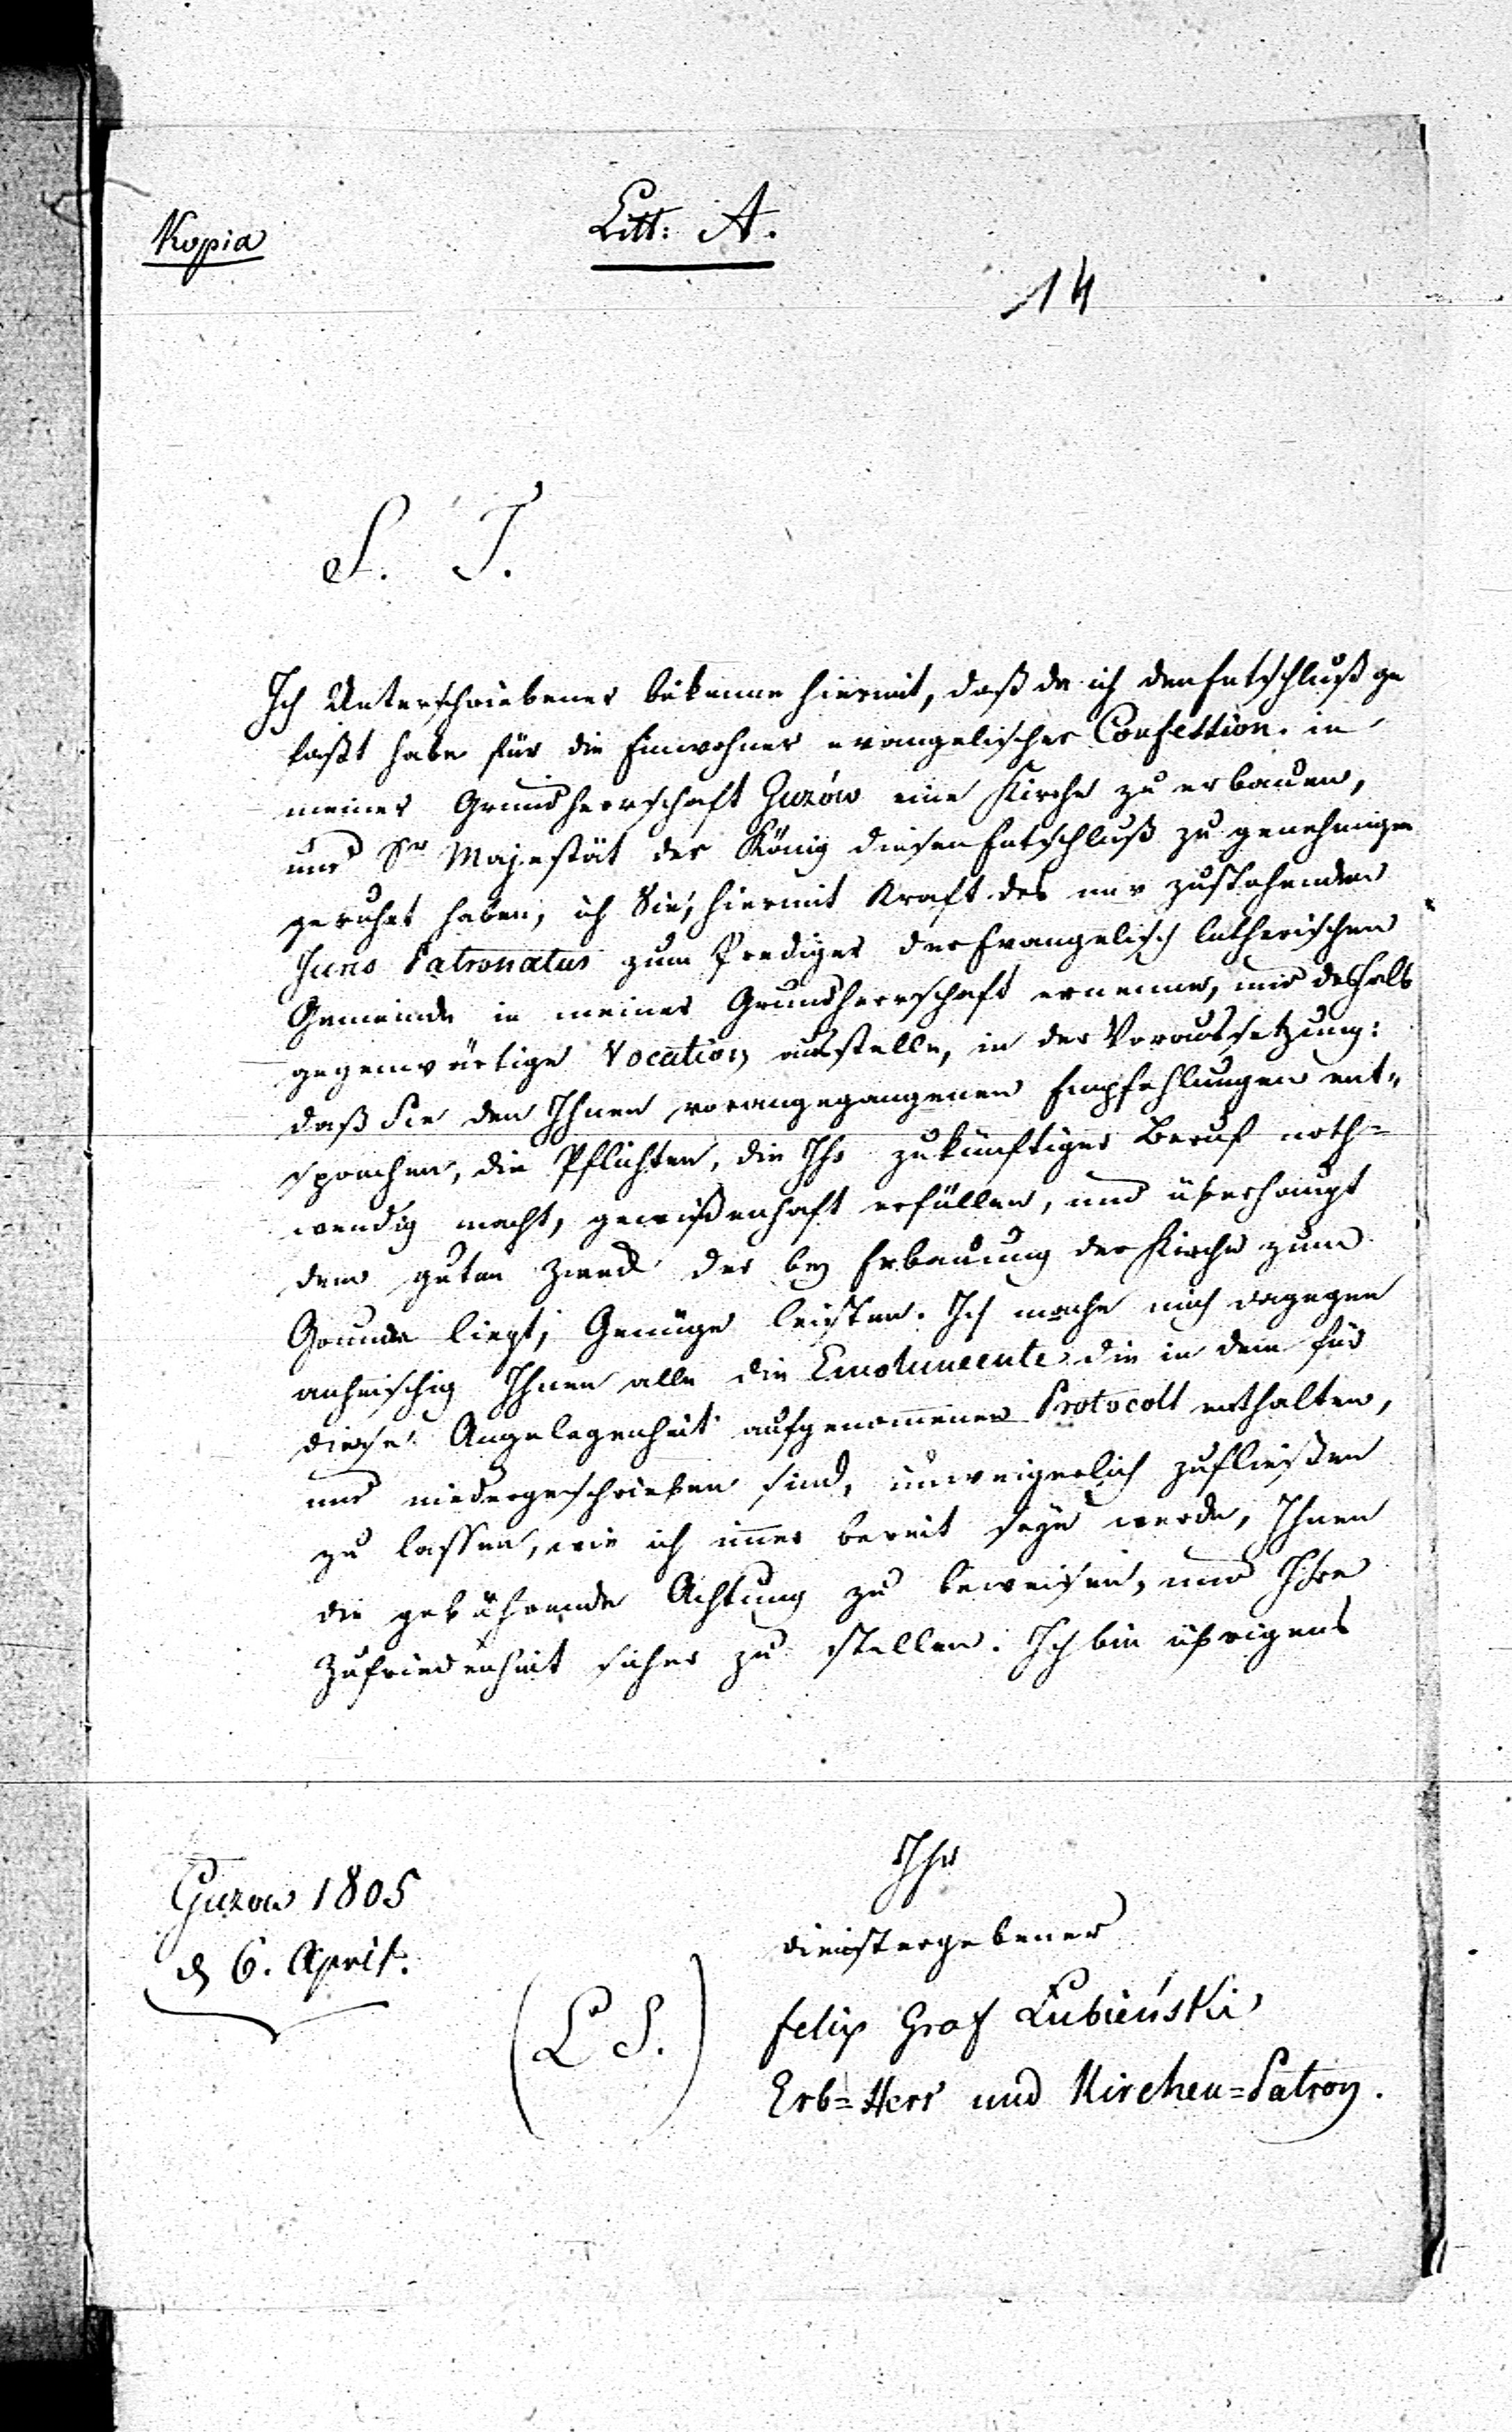 Kopia
Litt: A.
14
S. T.
Ich Unterschriebener bekenne hiermit, daß da ich den Entschluß ge
faßt habe für die Einwohner evangelischer Confession in
meiner Grundherrschaft Guzów eine Kirche zu erbauen,
und Sr Majestät der König diesen Entschluß zu genehmigen
geruhet haben, ich Sie, hiermit Kraft des mir zustehenden
Juris Patronatus zum Prediger der Evangelisch lutherischen
Gemeinde in meiner Grundherrschaft ernenne, und deshalb
gegenwärtige Vocation ausstelle, in der Voraussetzung:
daß Sie den Ihnen vorangegangenen Empfehlungen ent„
sprechen, die Pflichten, die Ihr zukünftiger Beruf noth=
wendig macht, gewißenhaft erfüllen, und überhaupt
dem guten Zweck der bey Erbauung der Kirche zum
Grunde liegt, Genüge leisten. Ich mache mich dagegen
anheischig Ihnen alle die Emolumente die in dem für
diese Angelegenheit aufgenom̅enen Protocoll enthalten,
und niedergeschrieben sind, unweigerlich zufließen
zu lassen, wie ich im̅er bereit seyn werde, Ihnen
die gebührende Achtung zu beweisen, und Ihre
Zufriedenheit sicher zu stellen. Ich bin übrigens
Ihr
Guzow 1805
d 6. April.
dienstergebener
(L S.)
Felix Graf Łubieński
Erb=Herr und Kirchen=Patron.